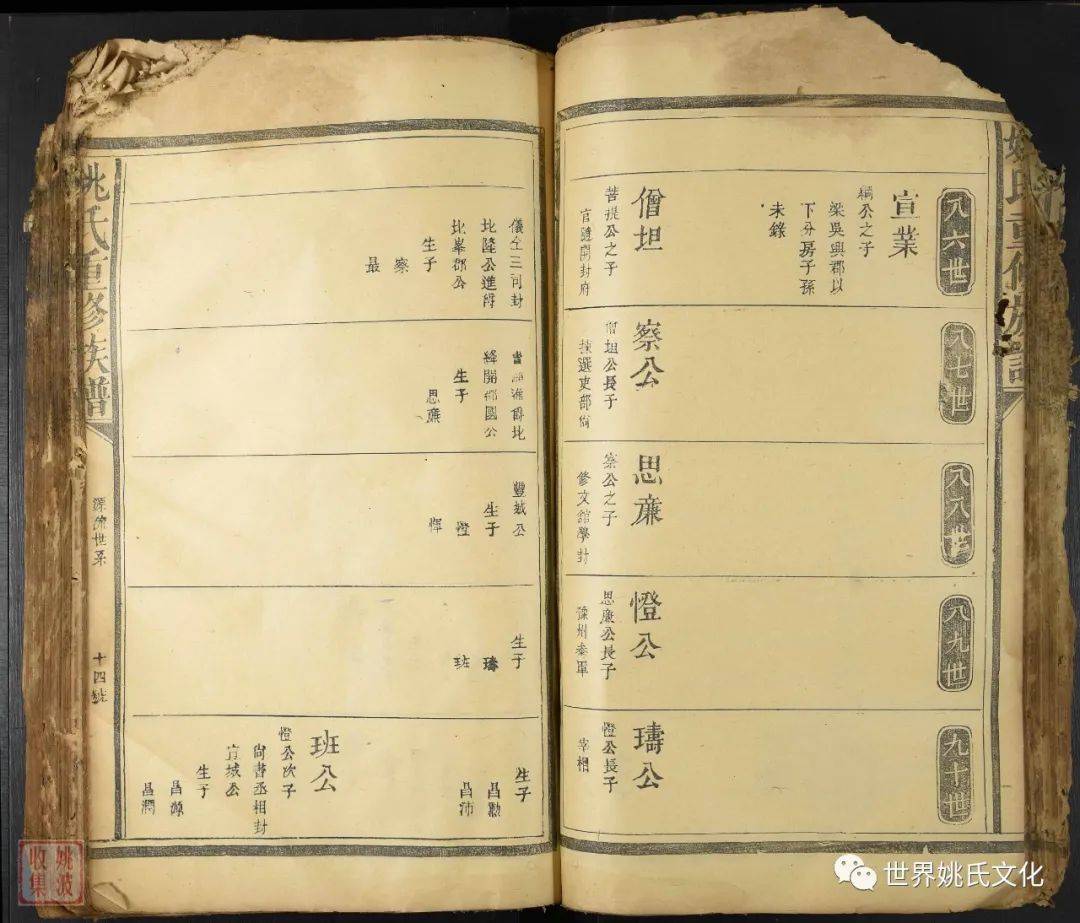 八六世
宣業
綱公之子
梁吳興郡以
下分房子孫
未錄
僧坦
菩提公之子
官隨開封府
八七世
察公
僧坦公長子
揀選吏部尙
八八世
思廉
察公之子
修文館學封
八九世
憕公
思廉公長子
豫州參軍
九十世
璹公
憕公長子
宰相
儀仝三司封
北降公進爵
北峯郡公
生子
察
最
絳開郡國公
生子
思廉
豐城公
生子
憕
惲
生子
璹
班
生子
昌勲
昌沛
班公
憕公次子
尙書丞相封
宣城公
生子
昌源
昌潤
姚氏重修族譜
源流世系
十四號
姚波
收集
世界姚氏文化